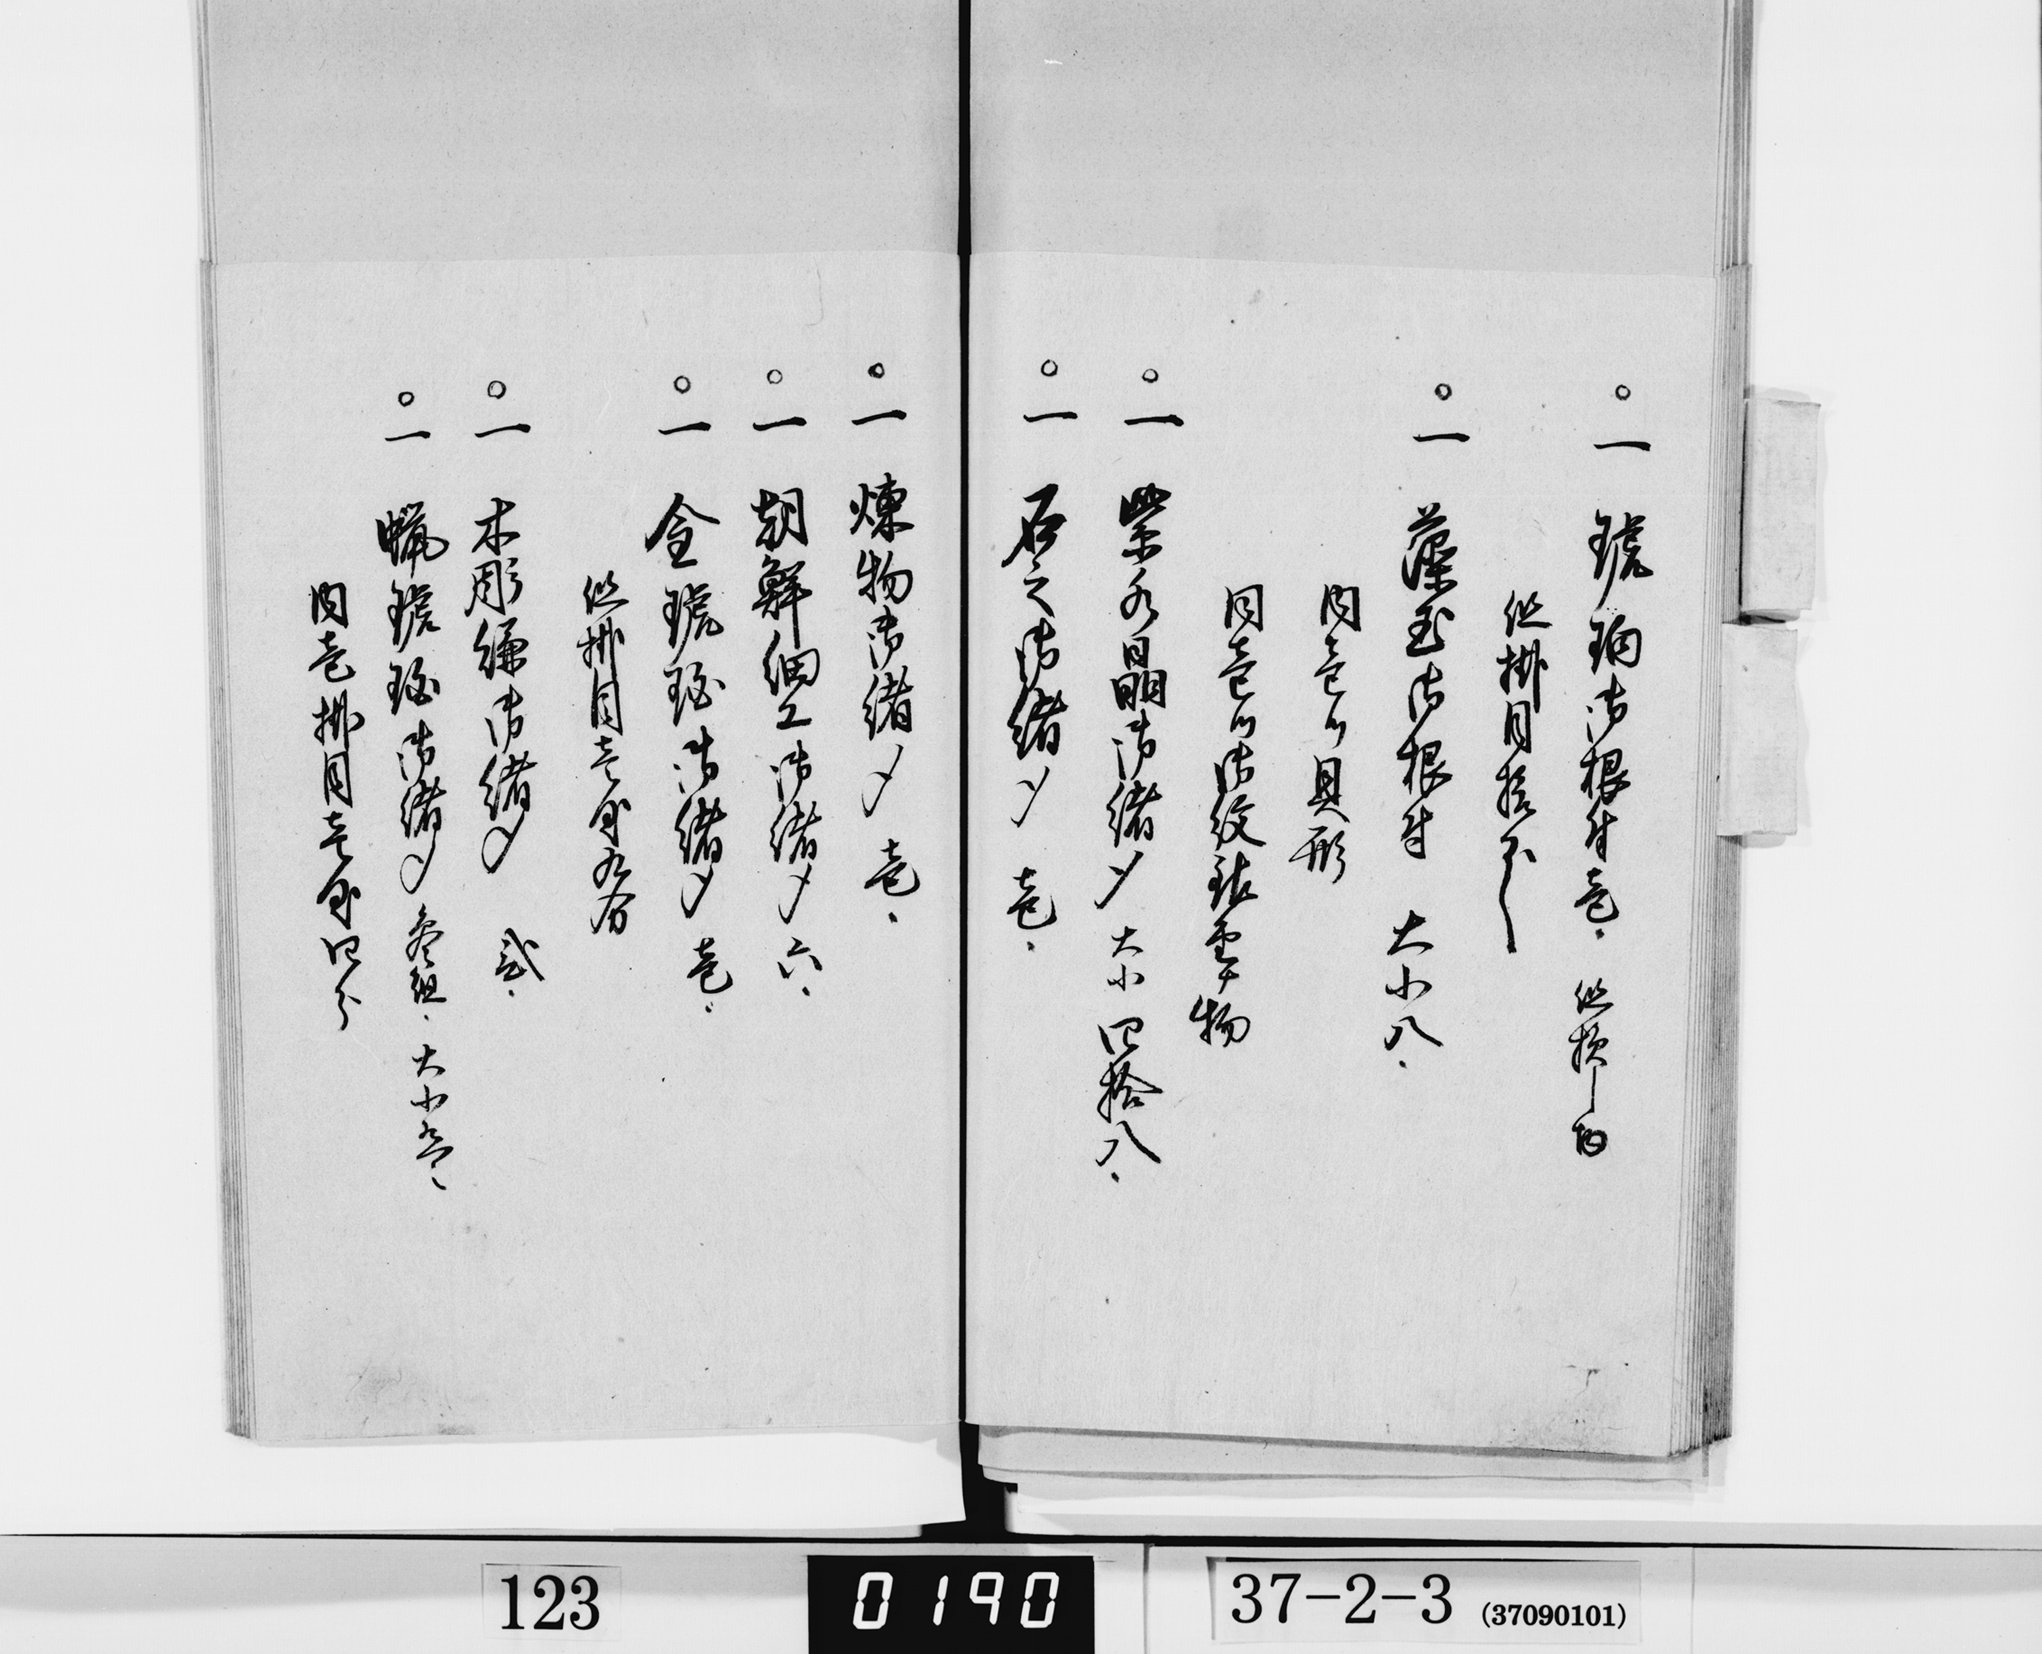 ○一 琥珀御根付壱、 但損し有
但掛目拾匁
○一 藻玉御根付 大小八、
内壱ツ貝形
同壱ツ御紋致置候物
○一 紫水晶御緒〆 大小四拾八、
○一 石之御緒〆 壱、
○一 煉物御緒〆 壱、
○一 朝鮮細工御緒〆 六、
○一 金琥珀御緒〆 壱、
但掛目壱匁九分
○一 木彫御緒〆 弐、
○一 蝋琥珀御緒〆 参組、大小
内壱掛目壱匁四分
123
0190
37-2-3 (37090101)